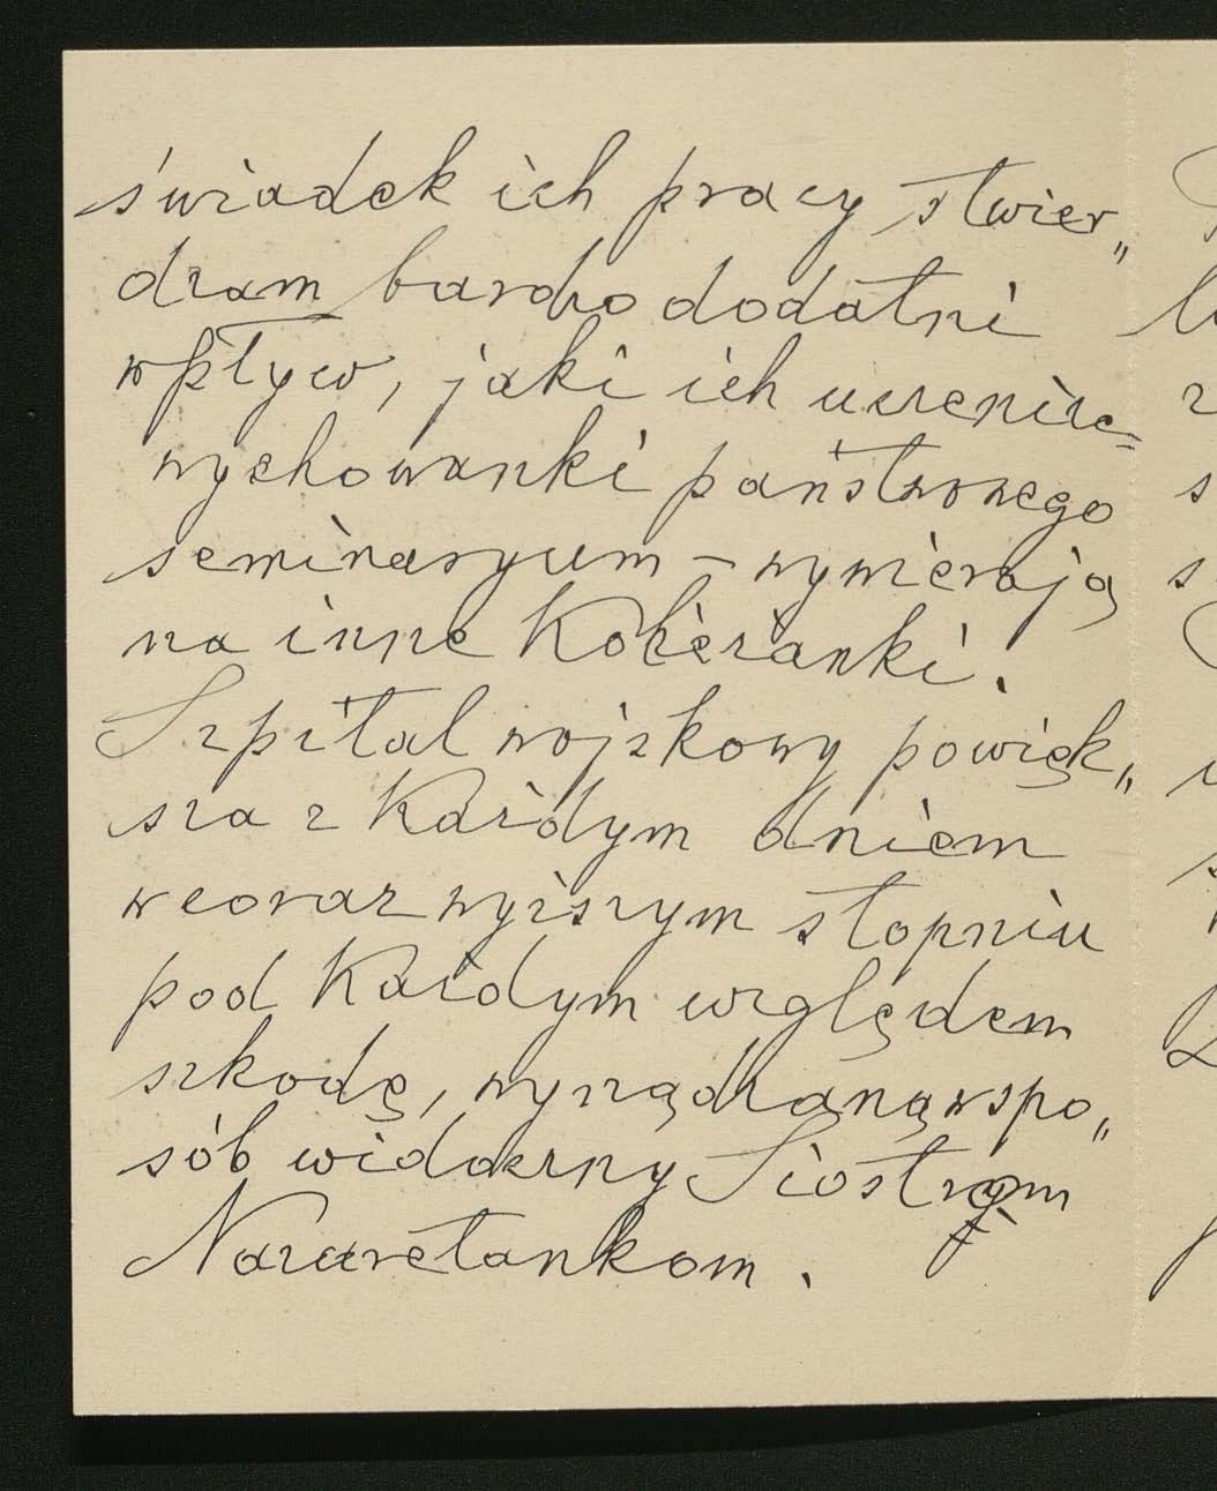 świadek ich pracy stwier„
dzam bardzo dodatni
wpływ, jaki ich uczenice=
wychowanki państwowego
seminaryum – wywierają
na inne Koleżanki.
Szpital wojskowy powięk„
sza z Każdym dniem
w coraz wyższym stopniu
pod Każdym względem
szkodę, wyrządzaną w spo„
sób widoczny Siostrom
Nazaretankom.